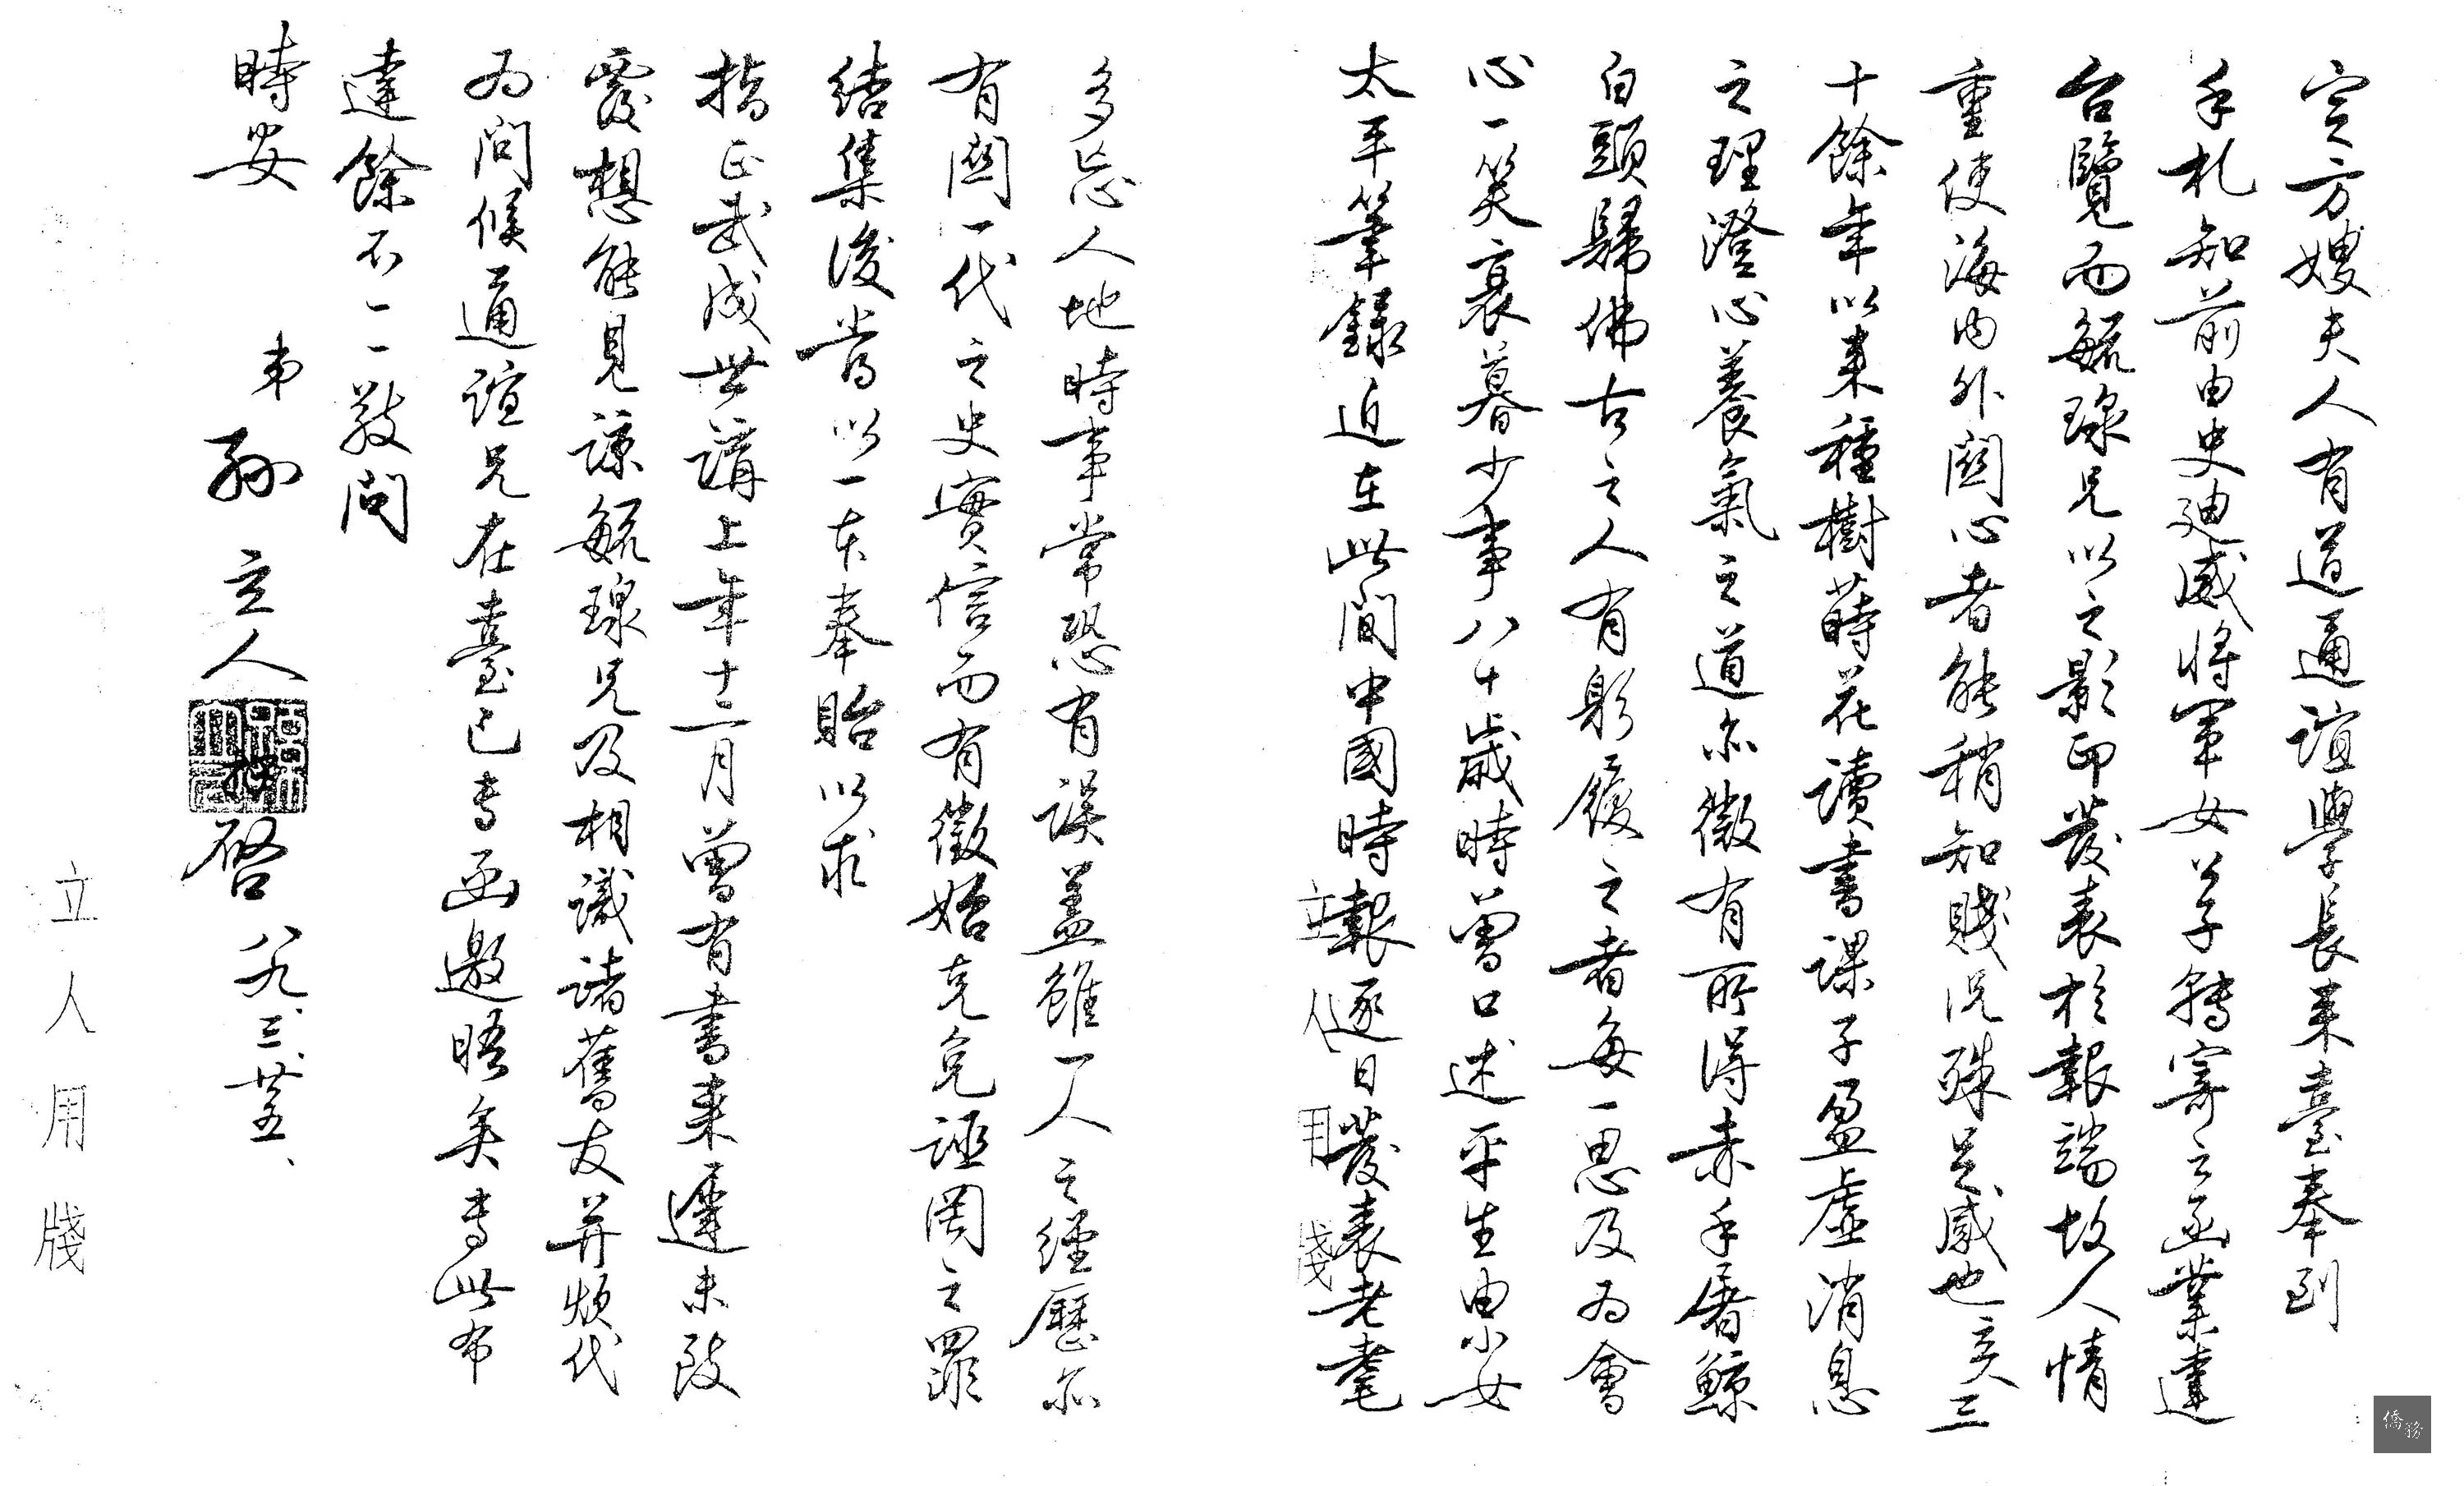 定方嫂夫人有道通誼學長來臺奉到
手札知前由史迪威將軍女公子轉寄之函業達
台覽而毓璟兄以之影印發表於報端故人情
重使海內外關心者能稍知賤況殊足感也亥三
十餘年以來種樹蒔花讀書課子盈虛消息
之理澄心養氣之道亦微有所得赤手屠鯨
白頭歸佛古之人有躬履之者每一思及為會
心一笑衰暮少事八十歲時曾口述平生由小女
太平筆錄近在此間中國時報逐日發表老耄
多忘人地時事常恐有誤蓋雖一人之經歷亦
有關一代之史實信而有徵始克免誣罔之罪
結集後當以一本奉貽以求
指正武成世講上年十二月曾有書來遲未致
覆想能見諒毓璟兄及相識諸舊友并煩代
為問候通誼兄在臺已專函邀晤矣專此布
達餘不一一敬問
時安
弟孫立人
啓 八九、三、廿五、
立人用牋
立人用牋
僑務